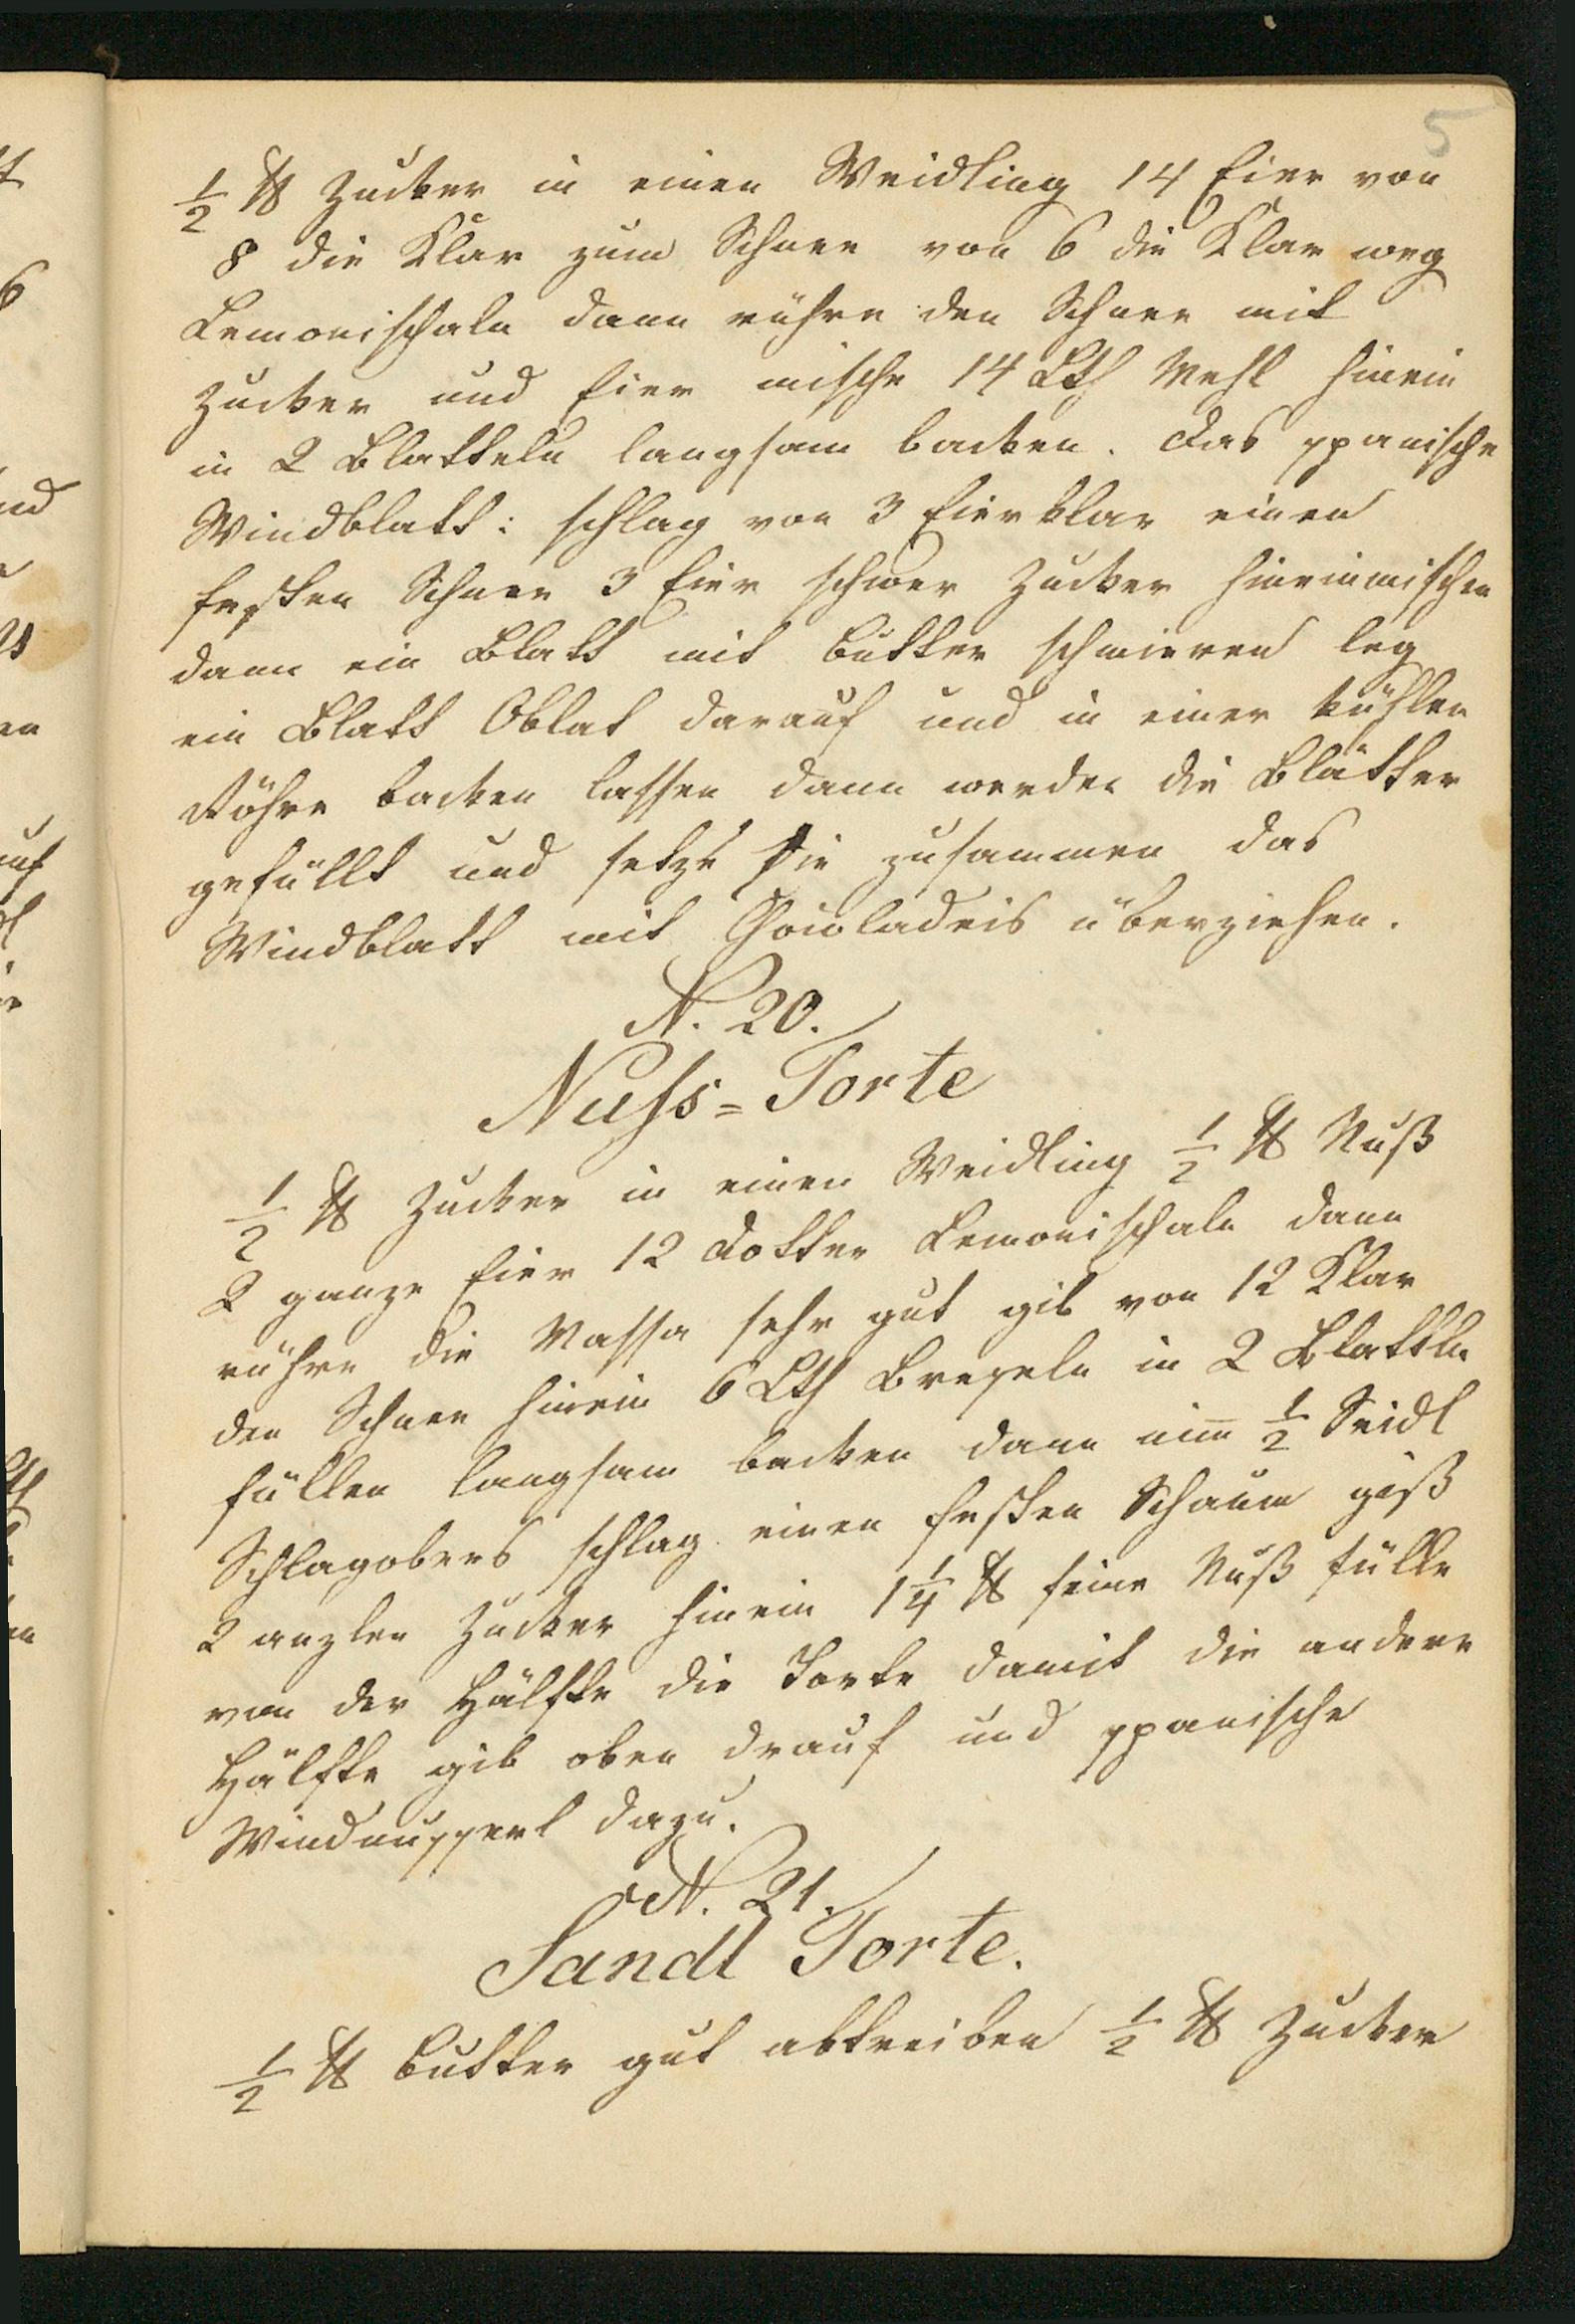 5
½ ℔ Zucker in einen Weidling 14 Eier von
8 die Klar zum Schnee von 6 die Klar weg
Lemonischaln dann rühre den Schnee mit
Zucker und Eier mische 14 Lth Mehl hinein
in 2 Blatteln langsam backen. Das spanische
Windblatt: schlag von 3 Eierklar einen
festen Schnee 3 Eier schwer Zucker hineinmischen
dann ein Blatt mit Butter schmieren leg
ein Blatt Oblat darauf und in einer kühlen
Röhre backen lassen dann werden die Blätter
gefüllt und setze sie zusammen das
Windblatt mit überziehen.
N. 20.
Nuss=Torte
½ ℔ Zucker in einen Weidling ½ ℔ Nuß
2 ganze Eier 12 Dotter Lemonischaln dann
rühre die Massa sehr gut gib von 12 Klar
den Schnee hinein 6 Lth Breseln in 2 Blattln
füllen langsam backen dann nim̄ ½ Seidl
Schlagobers schlag einen festen Schaum giß
2 Zucker hinein 1¼ ℔ feine Nuß fülle
von der Hälfte die Torte damit die andere
Hälfte gib oben drauf und spanische
dazu.
N. 21.
Sandl Torte.
½ ℔ Butter gut abtreiben ½ ℔ Zucker